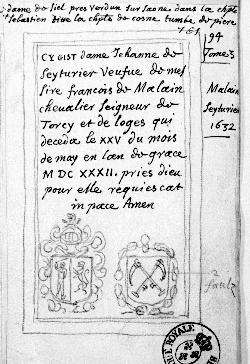 dame de siel pres verdun sur saone dans la chpelle
st sebastien dite la chpte de cosne tumbe de piere
781
94
Tome 3
CY GIST dame Jehanne de
Seyturier Veufue de mes
sire francois de Malain
cheualier Seigneur de
Torcy et de loges qui
deceda le XXV du mois
de may en lan de grace
M DC XXXII. pries dieu
pour elle requiescat
in pace Amen
Malain
Seyturier
1632
2
faulz
ROYALE